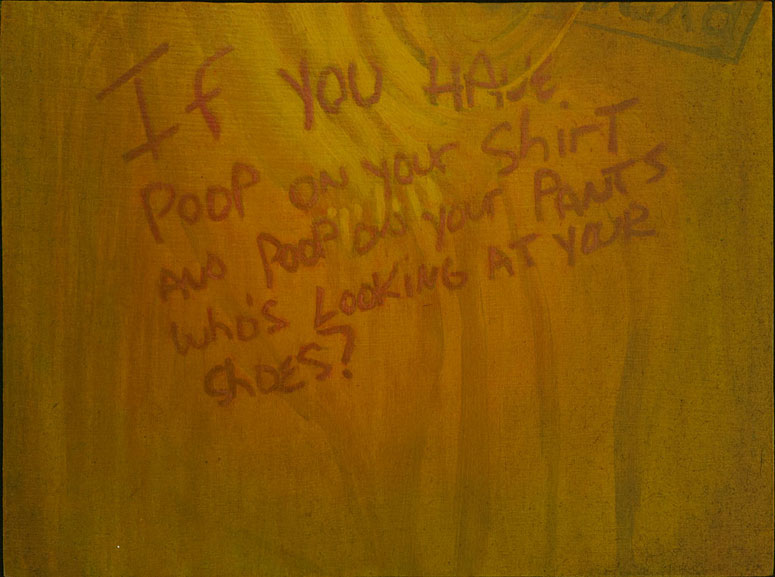 If YOU HAVE
POOP ON YOUR ShirT
AND POOP ON YOUR PANTS
WhO'S LOOKiNG AT YOUR
ShOES?